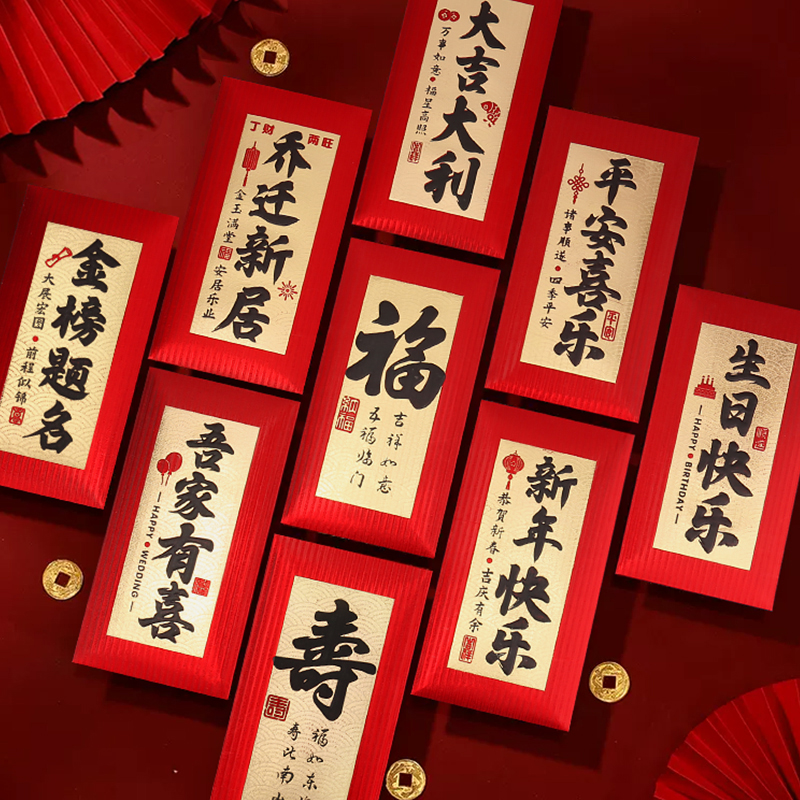 大吉大利
万事如意•福星高照
丁财
两旺
乔迁新居
金玉满堂
安居乐业
平安喜乐
诸事顺遂•四季平安
平安
金榜题名
大展宏图•前程似锦
福
吉祥如意
五福临门
生日快乐
HAPPY•BIRTHDAY
吾家有喜
HAPPY•WEDDING
新年快乐
恭贺新春•吉庆有余
寿
福如东
寿比南山